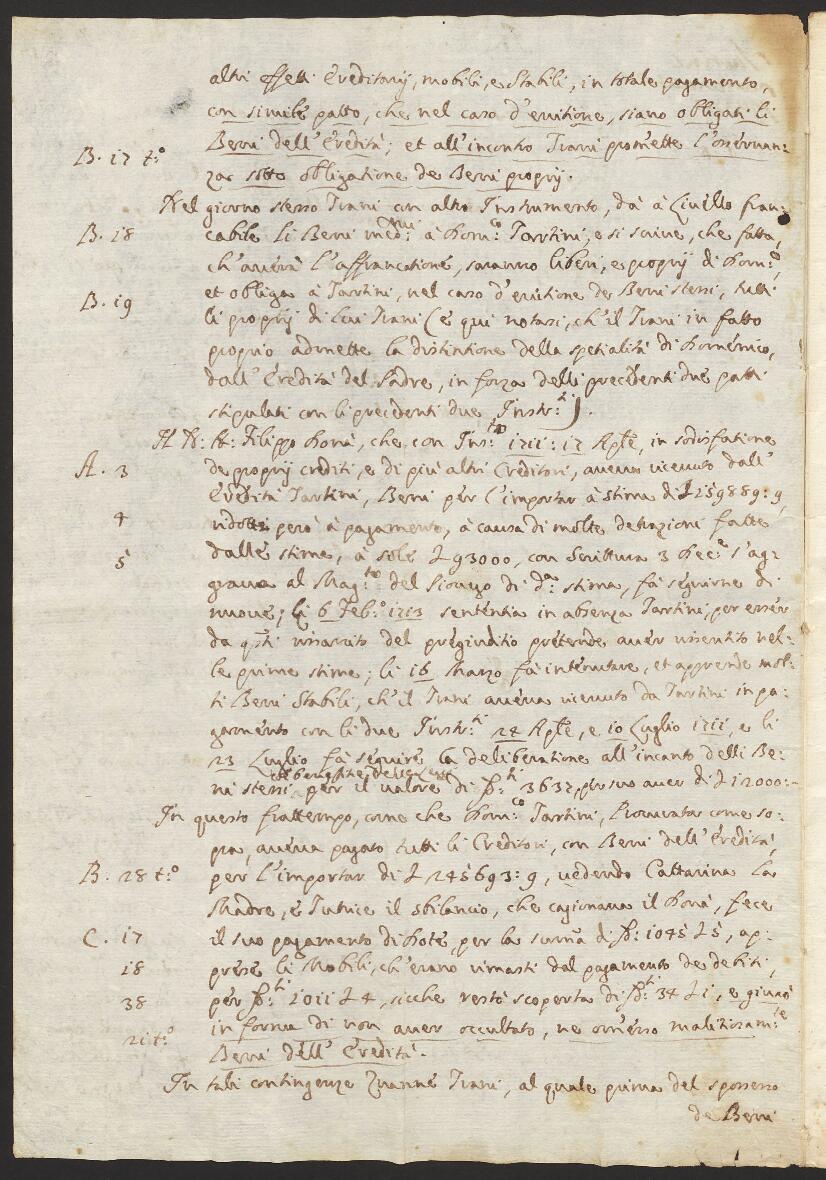 altri effetti Ereditarij, mobili, e Stabili, in totale pagamento,
con simile patto, che nel caso d'evitione, siano obligati li
B. 17 t.º Beni dell'Eredità; et all'incontro Trani promette l'osservan=
za sotto obligatione de Beni proprij.
Nel giorno stesso Trani con altro Instrumento, dà à Livello fran=
B. 18 cabile li Beni med:mi à Dom:co Tartini, e si scrive, che fatta,
ch'averà l'affrancatione, saranno liberi, e proprij di Dom:co,
B. 19 et obliga à Tartini, nel caso d'evitione de Beni stessi, tutti
li proprij di lui Trani (e qui notasi, ch'il Trani in fatto
proprio admette la distintione della spetialità di Doménico,
dall'Eredità del Padre, in forza delli precedenti due patti
stipulati con li precedenti due Instr:ti).
Il N: H: Filippo Donà, che con Ins:to 1711: 17 Aple, in sodisfatione
A. 3 de proprij crediti, e di più altri Creditori, aveva ricevuto dall'
Eredità Tartini, Beni per l'importar à stima di L 159889: 9,
4 ridotti però à pagamento, à causa di molte detrazioni fatte
5 dalle stime, à sole L 93000, con Scrittura 3 Dec:e s'ag=
grava al Mag:to del Sopra di d:a stima, fà seguirne di
nuove; li 6 Feb:º 1713 sententia in absenza Tartini, per esser
da q:sti risarcito del pregiuditio pretende aver risentito nel=
le prime stime; li 16 Marzo fà intenutare, et apprende mol=
ti Beni Stabili, ch'il Trani aveva ricevuto da Tartini in pa=
gamento con li due Instr:ti 24 Aple, e 10 Luglio 1711, e li
23 Luglio fà seguire la deliberatione all'incanto delli Be=
ni stessi per il valore di D:ti 3637, per suo aver di L 12000:-
In questo frattempo, come che Dom:co Tartini, Procurator come so=
pra, aveva pagato tutti li Creditori, con Beni dell'Eredità,
B. 28 t.º per l'importar di L 245693: 9, vedendo Cattarina la
Madre, e Tutrice il sbilancio, che cagionava il Donà, fece
C. 17 il suo pagamento di Dote, per la summa di D: 1045 L 5, ap=
18 prese li Mobili, ch'erano rimasti dal pagamento de debiti,
38 per D:ti 1011 L 4, sicche restò scoperta di D:ti 34 L 1, e giurò
21 t.º in forma di non aver occultato, ne omesso malitiosam:te
Beni dell'Eredità.
In tali contingenze Zuanne Trani, al quale prima del spossesso
de Beni